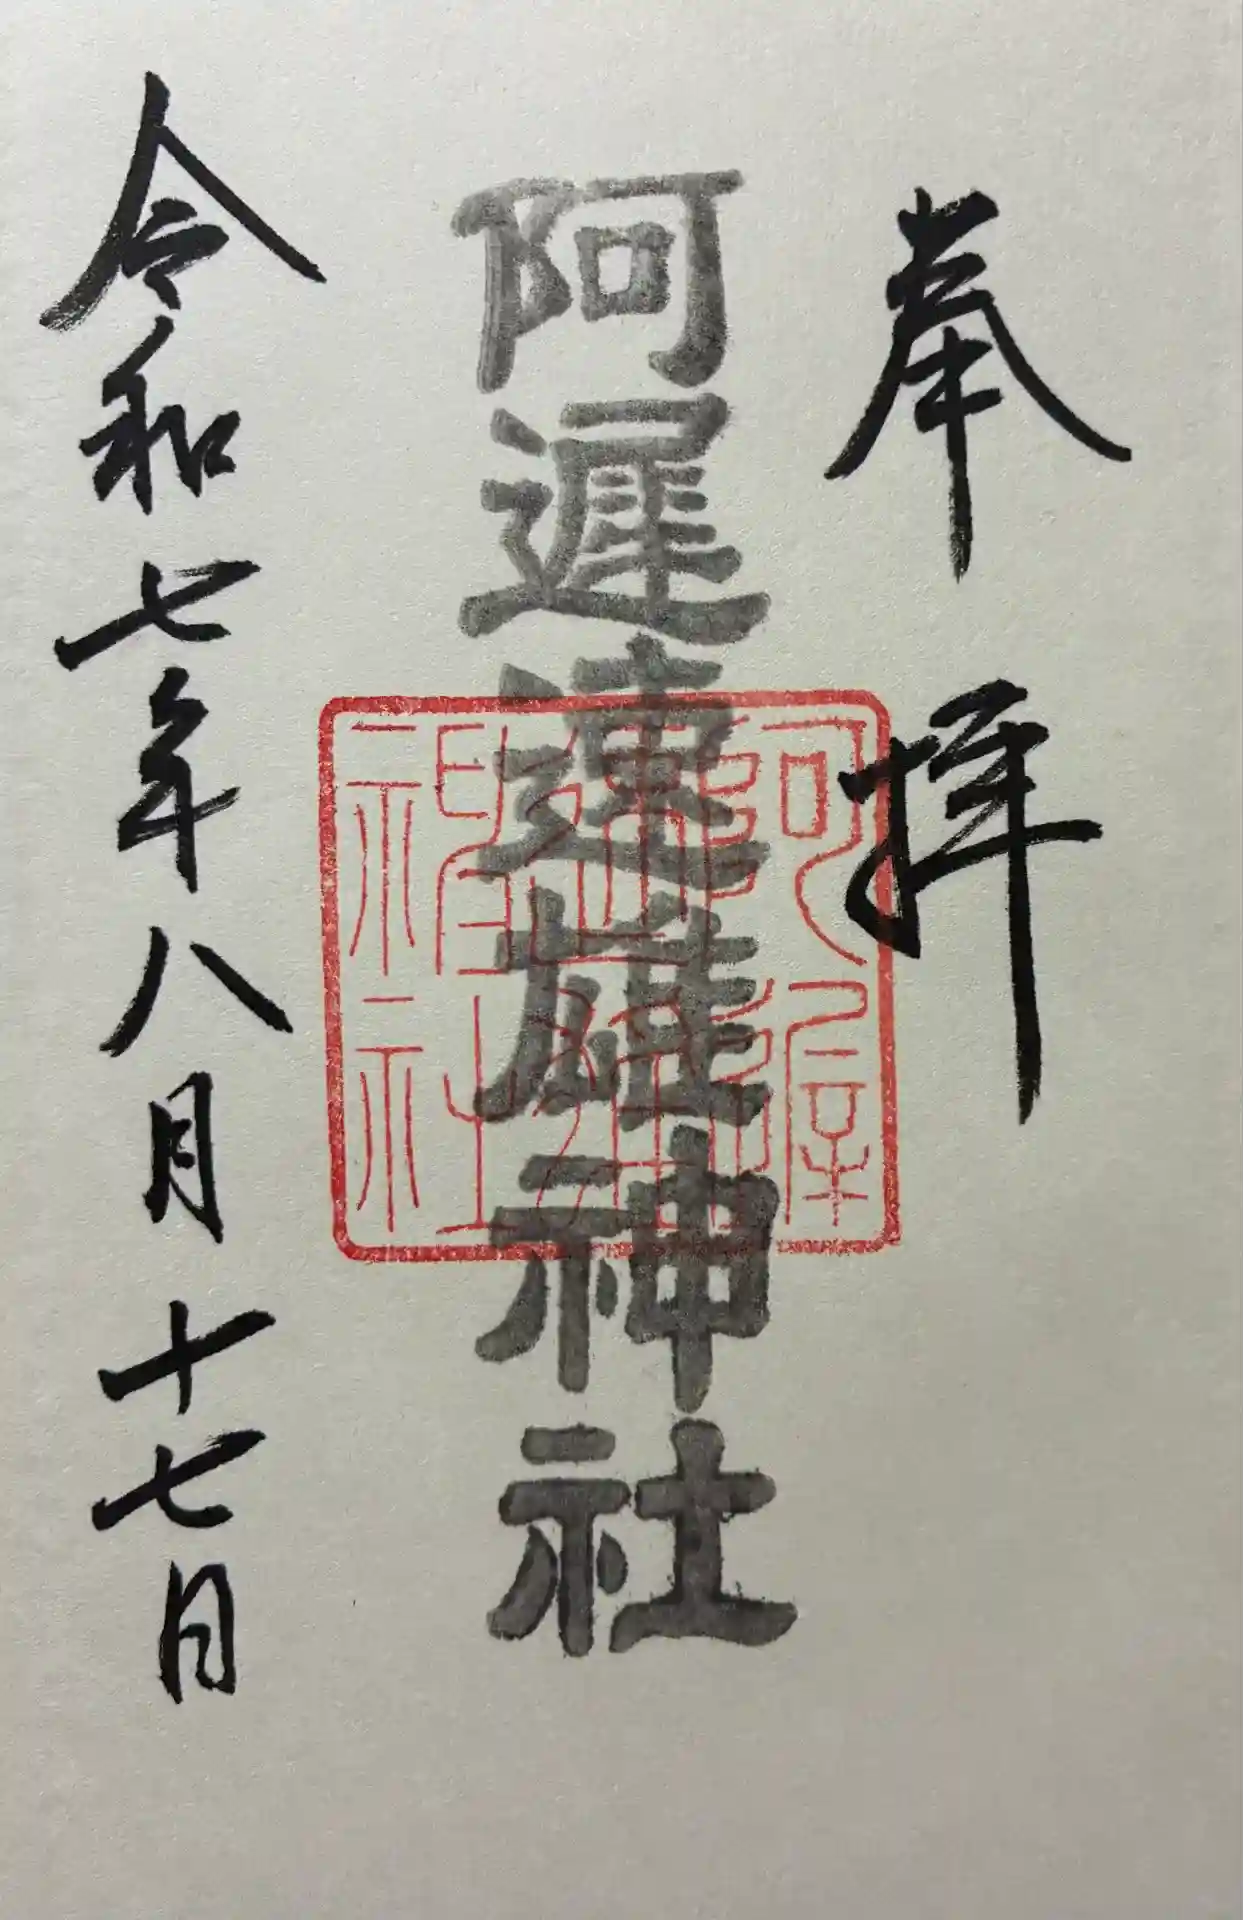 奉拝
阿遅速雄神社
阿遅
速雄
神社
令和七年八月十七日